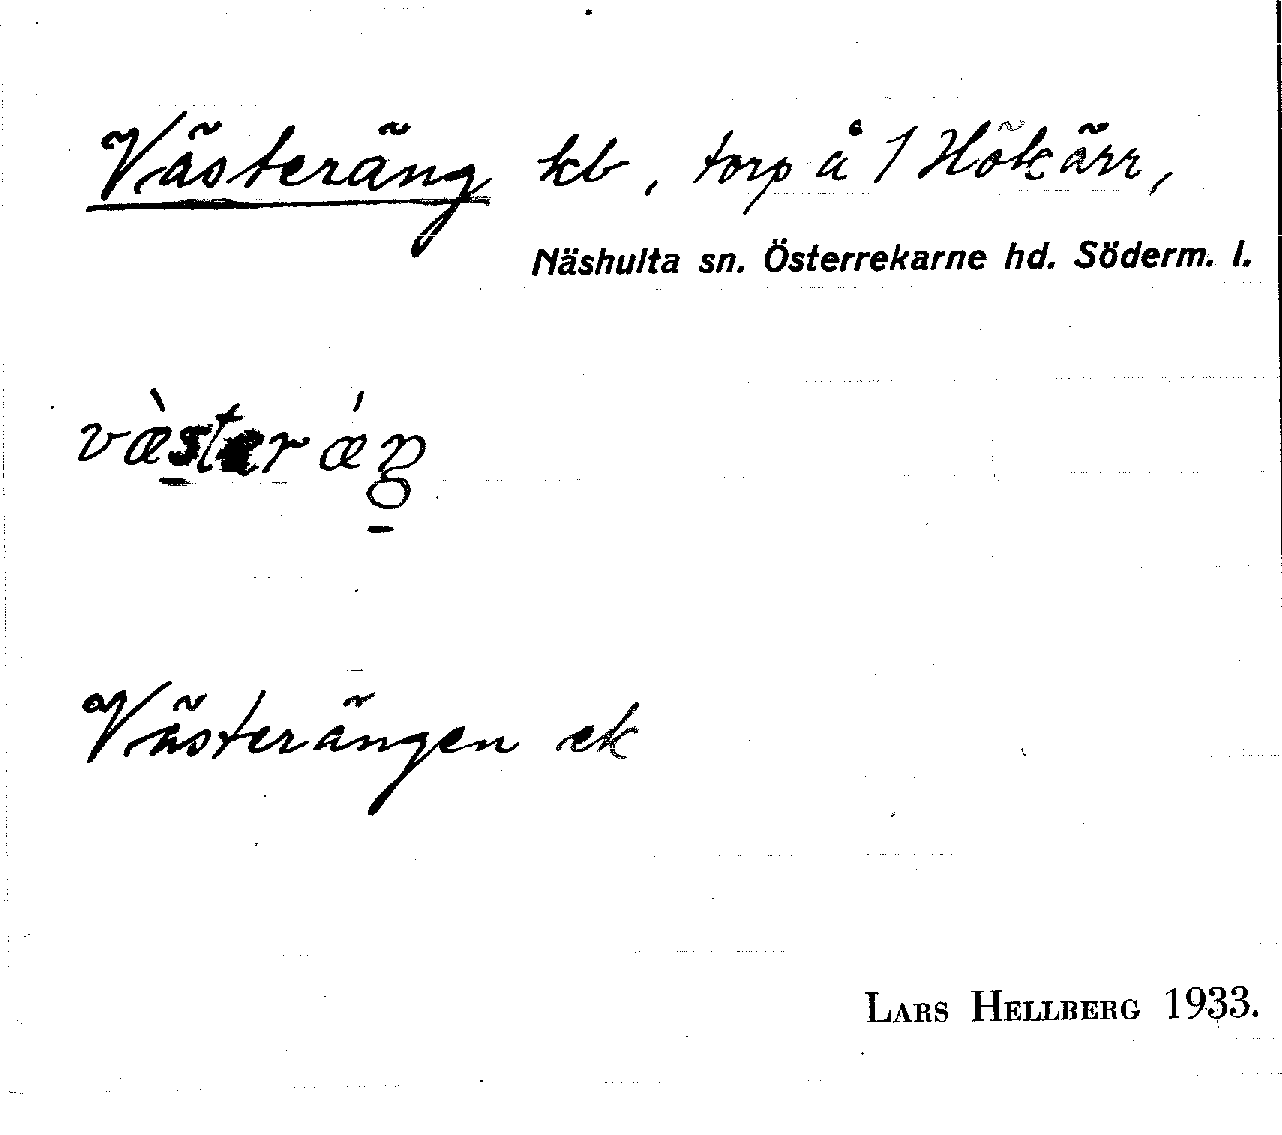 Västeräng kb, torp å 1 Hökärr,
Näshulta sn. Österrekarne hd. Söderm. l.
Västerängen ek
LARS HELLBERG 1933.